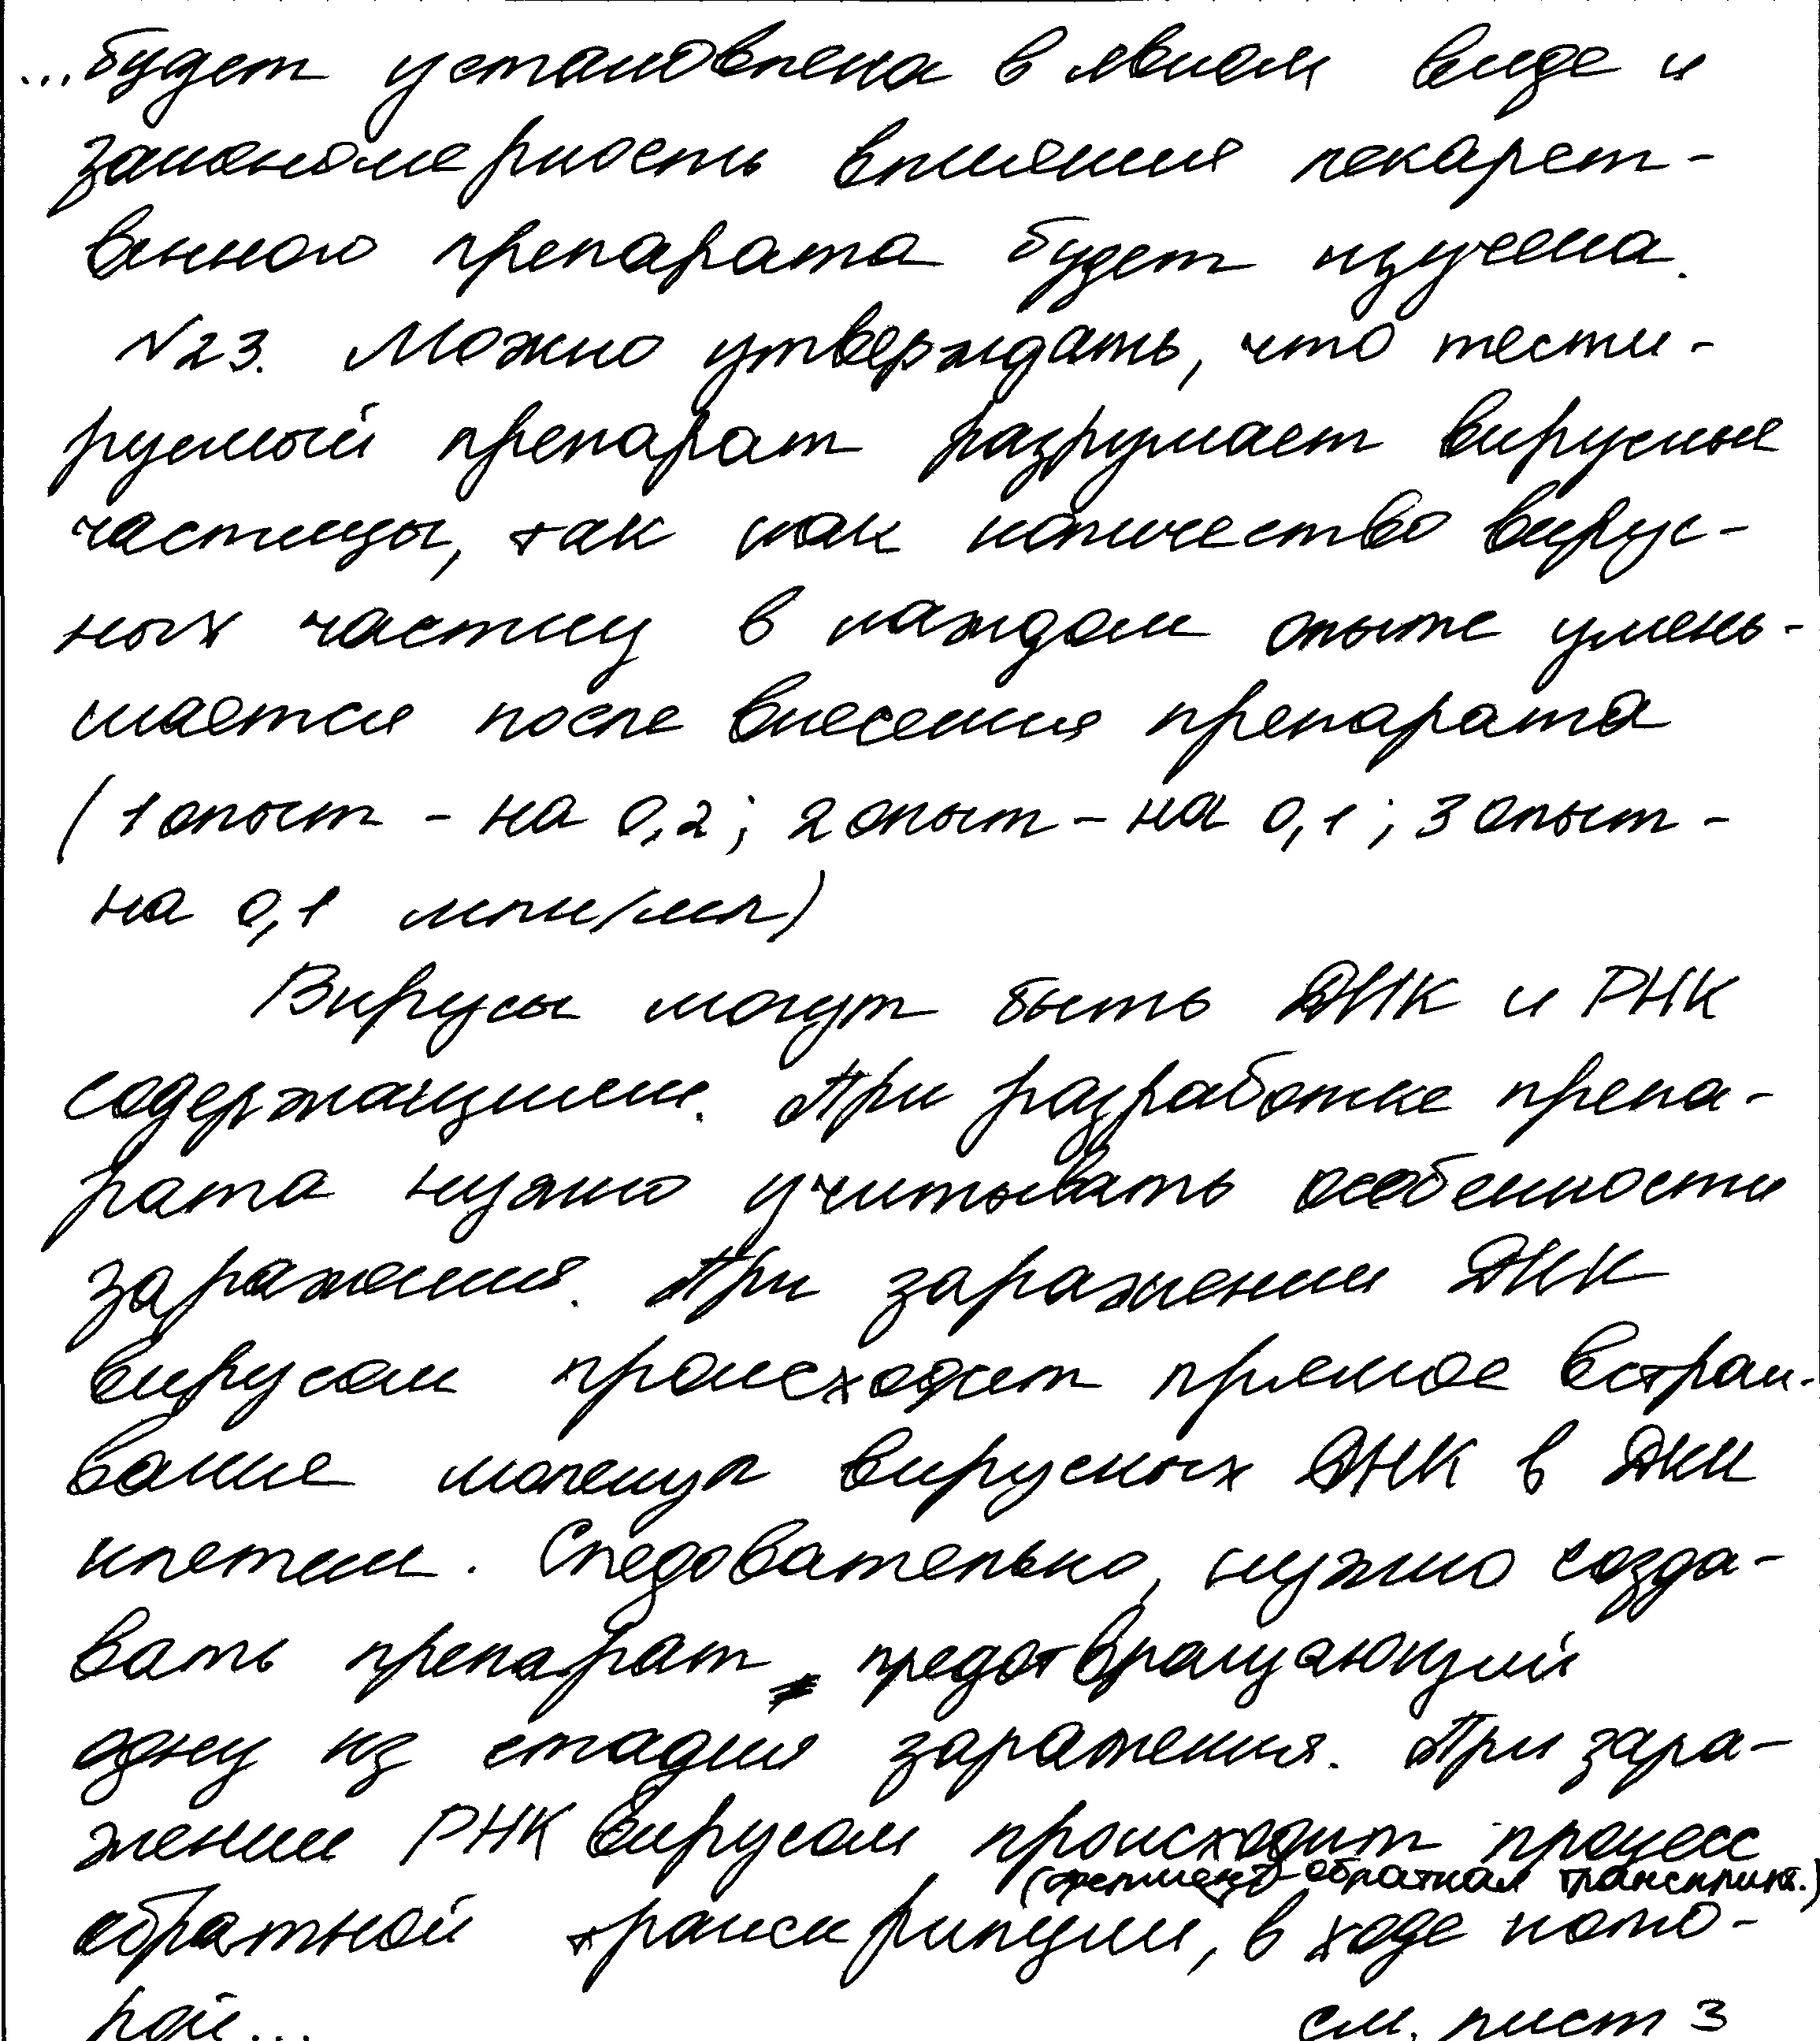 ...будет установлена в явном виде и
закономерность влияния лекарст-
венного препарата будет изучена.
№23. Можно утверждать, что тести-
руемый препарат разрушает вирусные
частицы, так как количество вирус-
ных частиц в каждом опыте умень-
шается после внесения препарата
(1 опыт - на 0,2; 2 опыт - на 0,1; 3 опыт -
на 0,1 млн/мл)
Вирусы могут быть ДНК и РНК
содержащими. При разработке препа-
рата нужно учитывать особенности
заражения. При заражении ДНК
вирусом происходит прямое встраи-
вание молекул вирусных ДНК в ДНК
клетки. Следовательно, нужно созда-
вать препарат, предотвращающий
одну из стадия заражения. При зара-
жении РНК вирусом происходит процесс
(фермент-обратная транскрипт.)
обратной транскрипции, в ходе кото-
рой...
см. лист 3